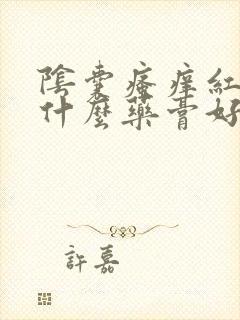 陰囊瘙痒紅
什麼藥膏好
許嘉